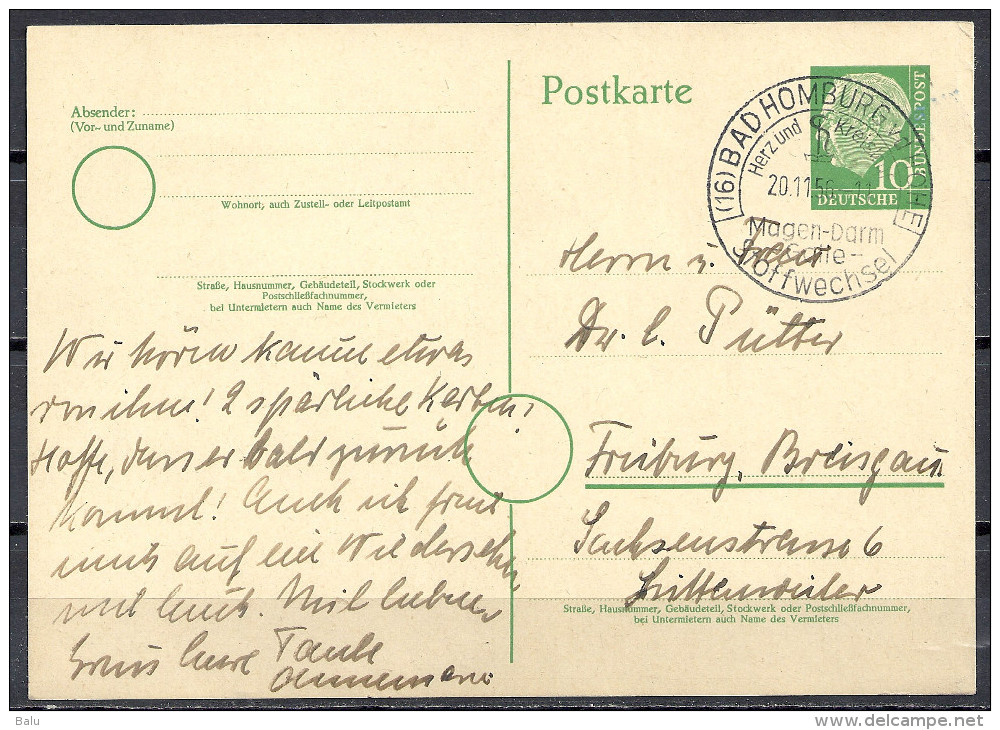 Absender:
(Vor- und Zuname)
Wohnort, auch Zustell- oder Leitpostamt
Straße, Hausnummer, Gebäudeteil, Stockwerk oder
Postschließfachnummer,
bei Untermietern auch Name des Vermieters
Wir hören kaum etwas
von ihm! 2 spärliche Karten!
Hoffe, dass er bald zurück
kommt! Auch ich freue
mich auf ein Wiedersehen
mit Euch. Mit lieben
Gruss Eure Tante
Annemarie
Postkarte
(16) BAD HOMBURG v.d. HÖHE
Herz und Kreis
20.11.56
Magen-Darm
Stoffwechsel
10
DEUTSCHE
BUNDESPOST
Herrn u. Frau
Dr. E. Pütter
Freiburg, Breisgau
Sachsenstrasse 6
Littenweiler
Straße, Hausnummer, Gebäudeteil, Stockwerk oder Postschließfachnummer,
bei Untermietern auch Name des Vermieters
Balu
delcampe.net